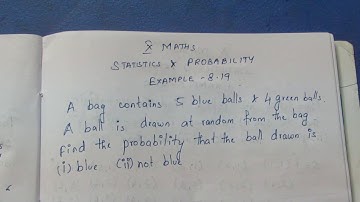 X MATHS
STATISTICS & PROBABILITY
EXAMPLE - 8.19
A bag contains 5 blue balls & 4 green balls.
A ball is drawn at random from the bag.
Find the probability that the ball drawn is
(i) blue (ii) not blue